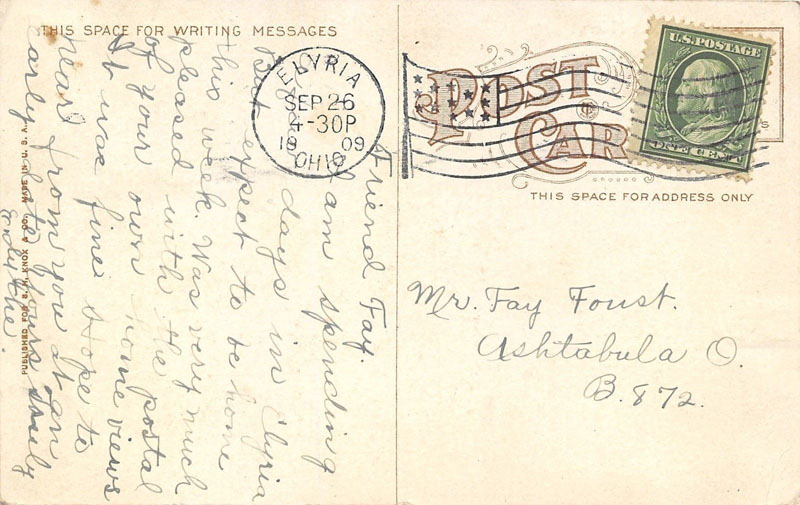 THIS SPACE FOR WRITING MESSAGES
Friend Fay.
I am spending
a few days in Elyria
But expect to be home
this week. Was very much
pleased with the postal
of your own home views
It was fine. Hope to
hear from you at an
early date. Yours Sincerely
PUBLISHED FOR S. H. KNOX & CO. MADE IN U. S. A.
ELYRIA
SEP 26
4-30P
1909
OHIO
POST
CARD
U.S. POSTAGE
ONE CENT
THIS SPACE FOR ADDRESS ONLY
Mr. Fay Foust.
Ashtabula O.
B. 872.